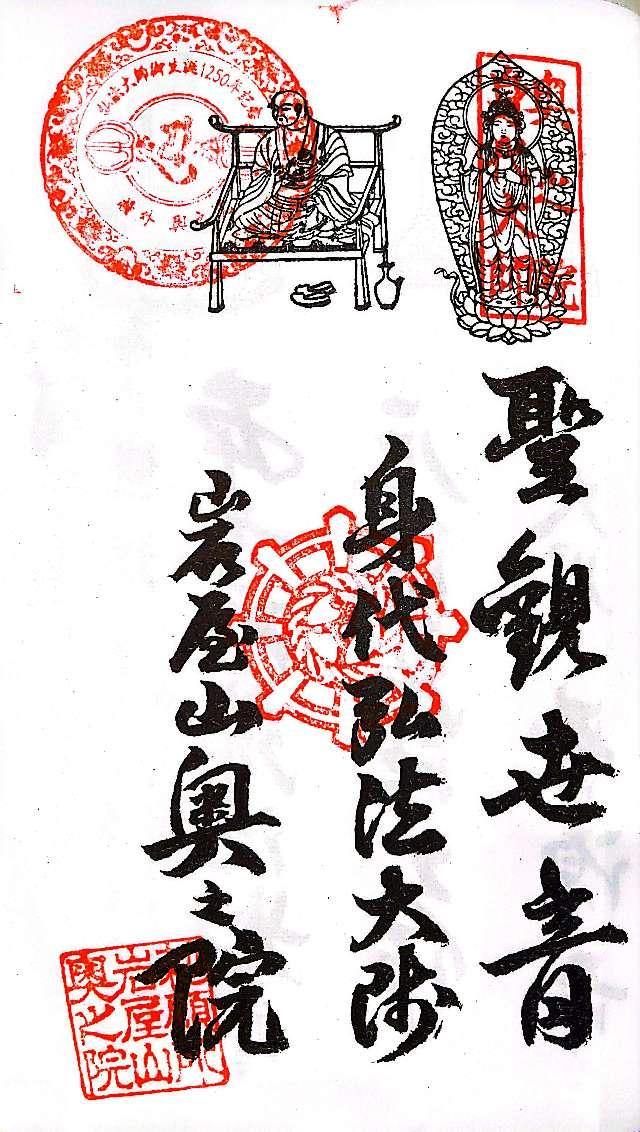 聖観世音
身代弘法大师
岩屋山奥之院
弘法大師御生誕1250年記念
岩屋山
奥之院